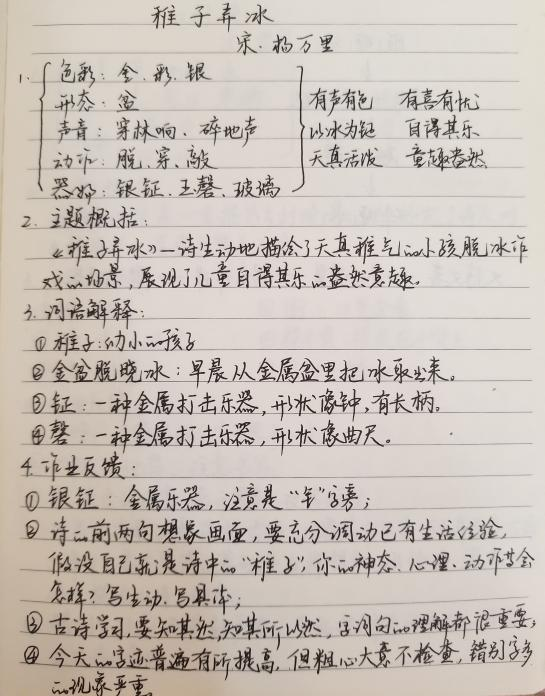 稚子弄冰
宋·杨万里
1. 色彩：金、彩、银
形态：盆
声音：穿林响、碎地声
动作：脱、穿、敲
器物：银钲、玉磬、玻璃
有声有色 有喜有忧
以冰为钲 自得其乐
天真活泼 童趣盎然
2. 主题概括：
《稚子弄冰》一诗生动地描绘了天真稚气的小孩脱冰作
戏的场景，展现了儿童自得其乐的盎然意趣。
3. 词语解释：
① 稚子：幼小的孩子
② 金盆脱晓冰：早晨从金属盆里把冰取出来。
③ 钲：一种金属打击乐器，形状像钟，有长柄。
④ 磬：一种金属打击乐器，形状像曲尺。
4. 作业反馈：
① 银钲：金属乐器，注意是“钅”字旁；
② 诗的前两句想象画面，要充分调动已有生活经验，
假设自己就是诗中的“稚子”，你的神态、心理、动作等会
怎样？写生动、写具体；
③ 古诗学习，要知其然，知其所以然，字词句的理解都很重要；
④ 今天的字迹普遍有所提高，但粗心大意不检查，错别字多
的现象严重